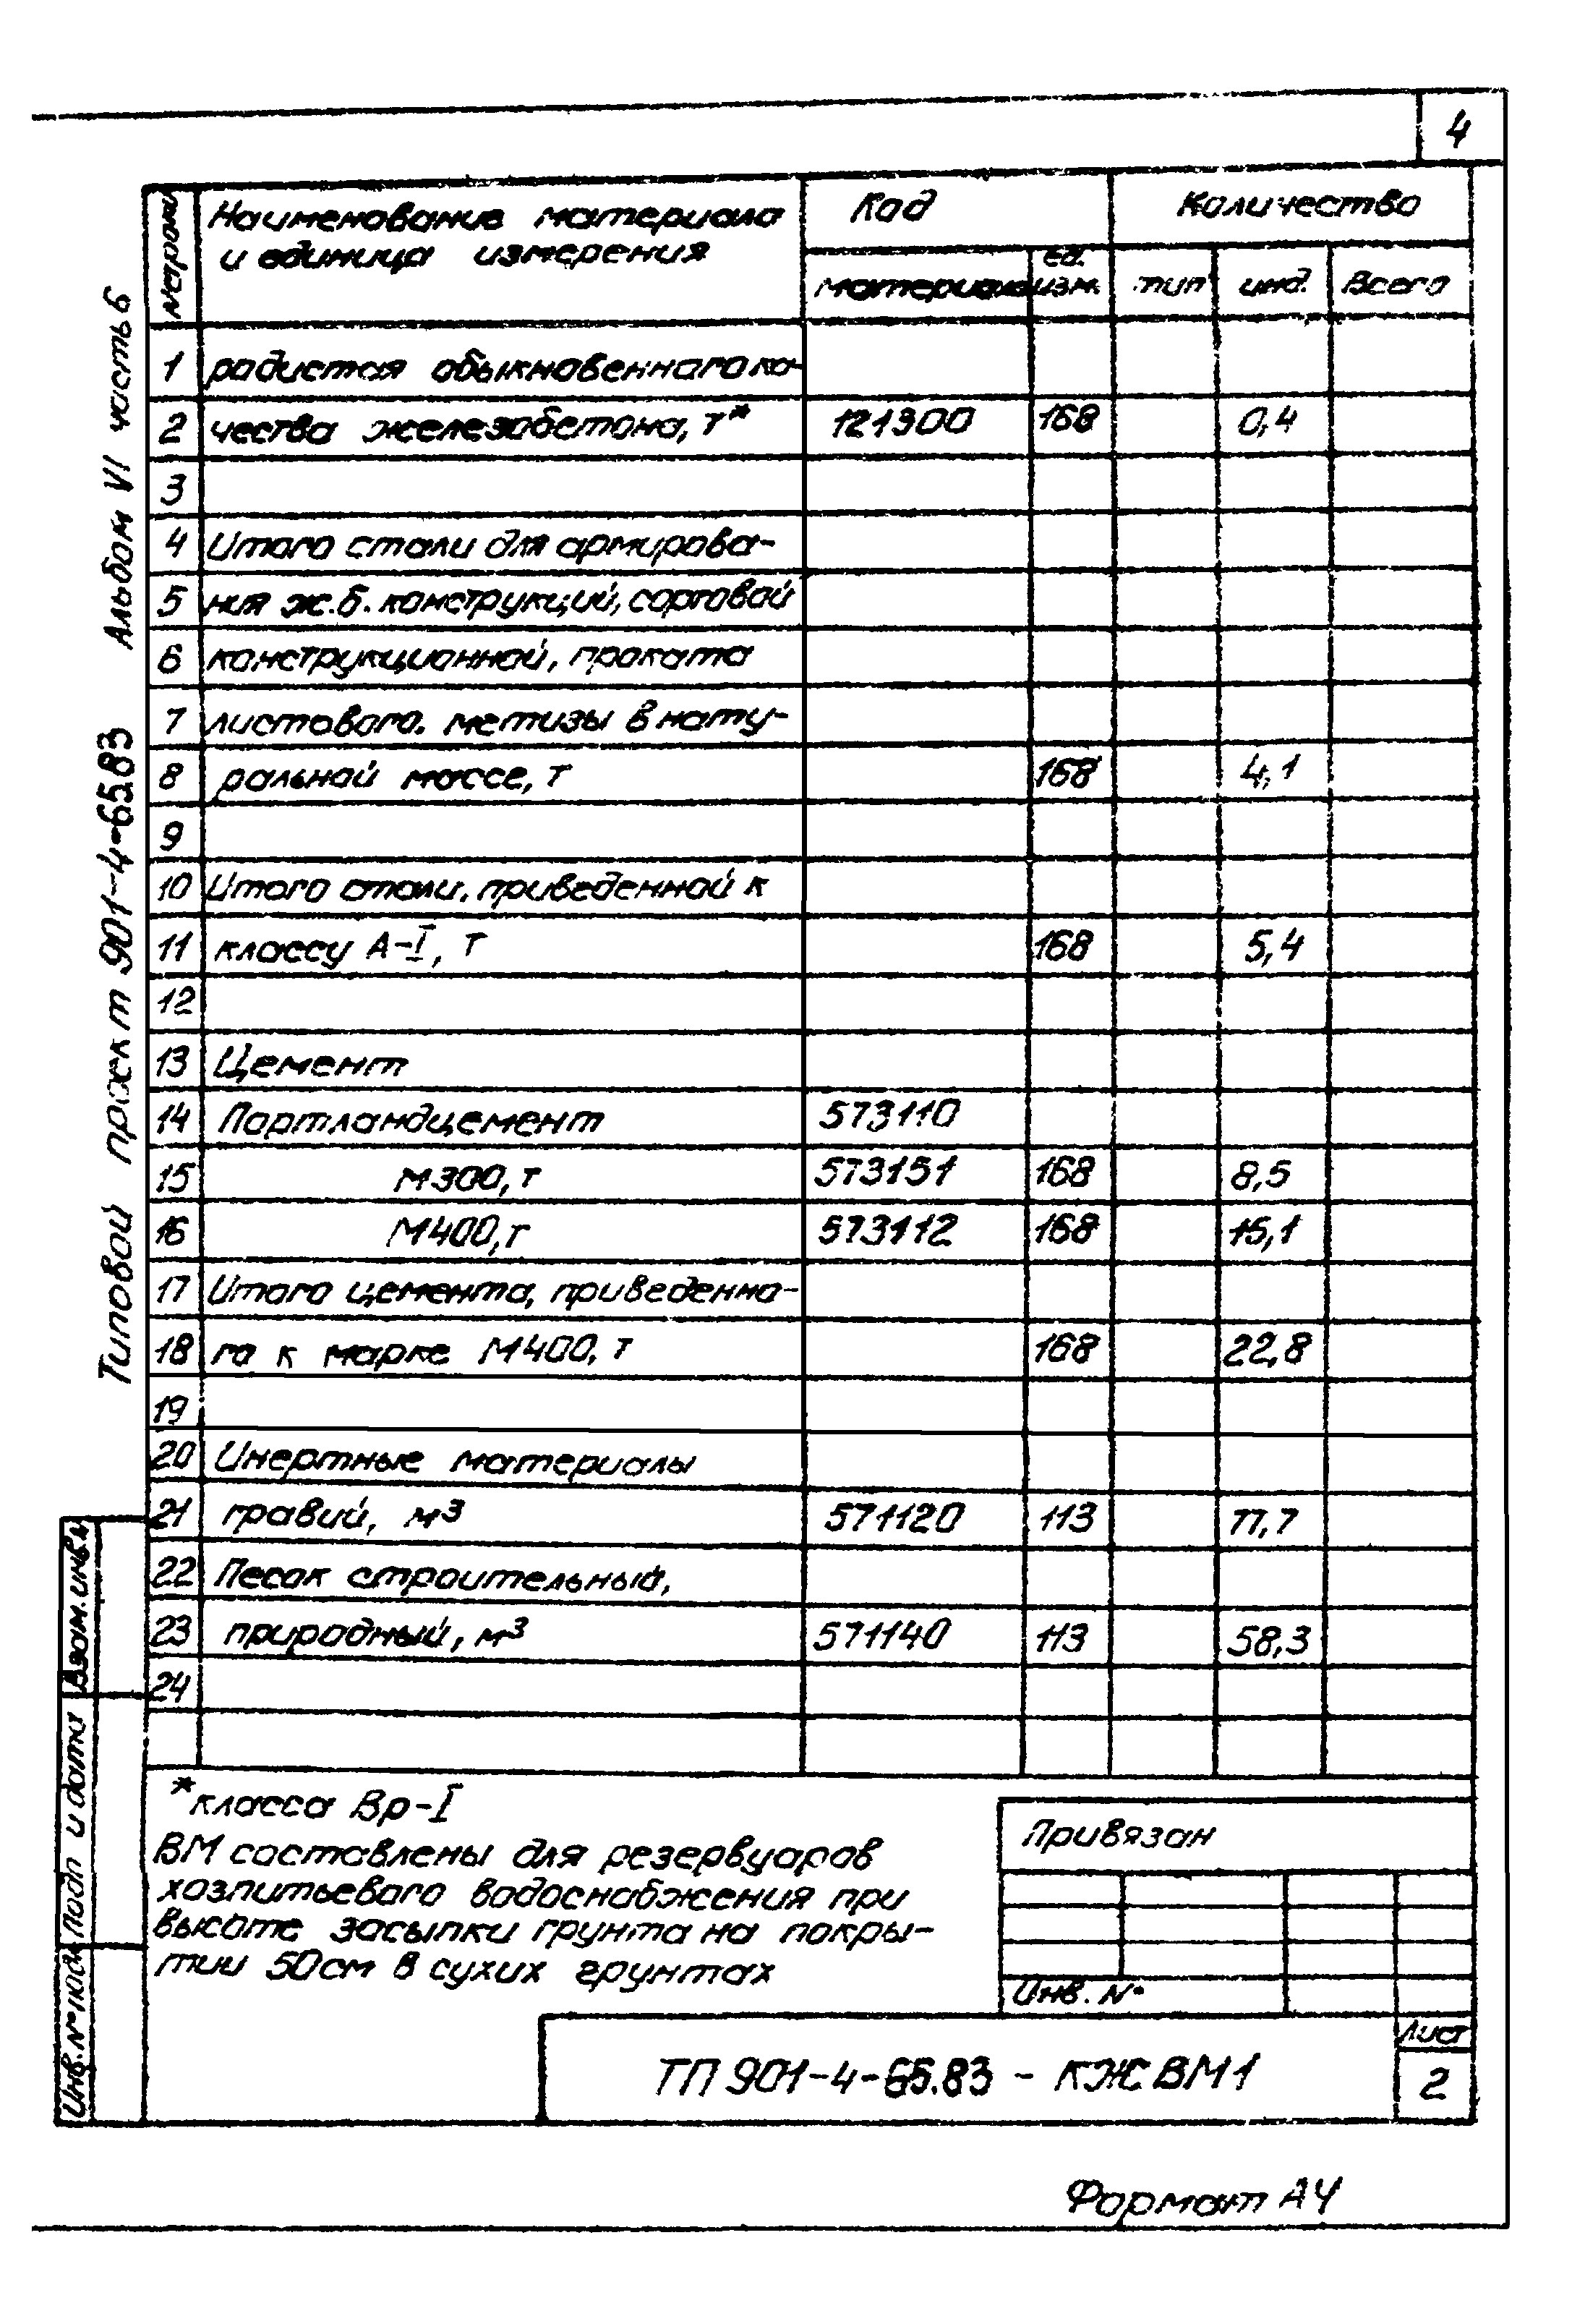 4
№ строки
Наименование материала
и единица измерения
Код
Количество
материала
ед.
изм.
тип
инд.
Всего
1 радистая обыкновенного ка-
2 чества железобетона, т* 121300 168 0,4
3
4 Итого стали для армирова-
5 ния ж.б. конструкций, сортовой
6 конструкционной, проката
7 листового. метизы в нату-
8 ральной массе, т 168 4,1
9
10 Итого стали, приведенной к
11 классу А-I, т 168 5,4
12
13 Цемент
14 Портландцемент 573110
15 М300, т 573151 168 8,5
16 М400, т 573112 168 15,1
17 Итого цемента, приведенно-
18 го к марке М400, т 168 22,8
19
20 Инертные материалы
21 гравий, м³ 571120 113 77,7
22 Песок строительный,
23 природный, м³ 571140 113 58,3
24
*класса Вр-I
ВМ составлены для резервуаров
хозпитьевого водоснабжения при
высоте засыпки грунта на покры-
тии 50см в сухих грунтах
Привязан
Инв. №
ТП 901-4-65.83 - КЖ ВМ1
Лист
2
Формат А4
Типовой проект 901-4-65.83 Альбом VI часть 6
Взам. инв.№
Подп и дата
Инв.№ подл